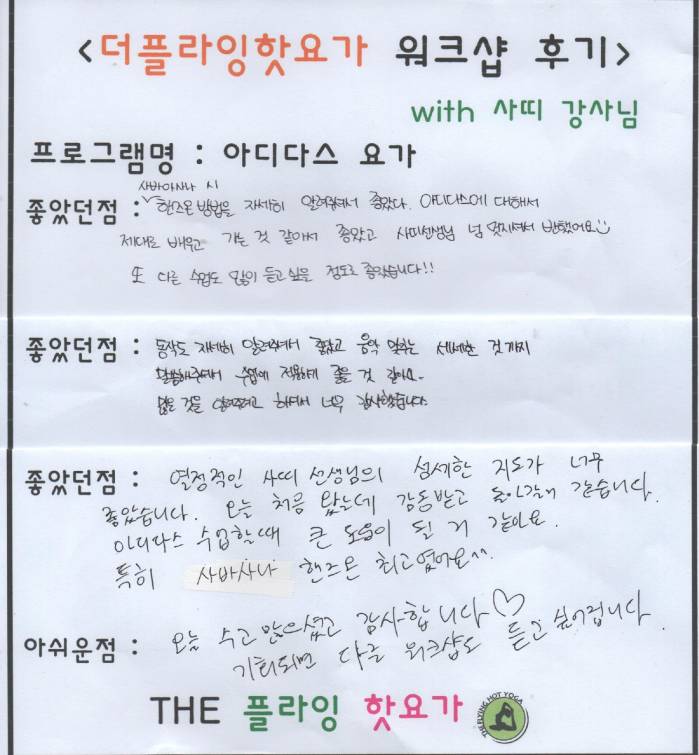 <더플라잉핫요가 워크샵 후기>
with 사띠 강사님
프로그램명 : 아디다스 요가
사바아사나 시
좋았던점 : 핸즈온 방법을 자세히 알려줘서 좋았다. 아디다스에 대해서
제대로 배우고 가는 것 같아서 좋았고 사띠선생님 넘 멋지셔서 반했어요
또 다른 수업도 많이 듣고싶을 정도로 좋았습니다!!
좋았던점 : 동작도 자세히 알려주셔서 좋았고 음악 맞추는 세세한 것까지
말씀해주셔서 수업에 적용하게 좋을 것 같아요.
많은 것을 알려주려고 하셔서 너무 감사했습니다.
좋았던점 : 열정적인 사띠 선생님의 섬세한 지도가 너무
좋았습니다. 오늘 처음 왔는데 감동받고 돌아갈거 같습니다.
아디다스 수업할때 큰 도움이 될 거 같아요.
특히 사바사나 핸즈온 최고였어요^^.
아쉬운점 : 오늘 수고 많으셨고 감사합니다♡
기회되면 다른 워크샵도 듣고 싶어집니다.
THE 플라잉 핫요가
THE FLYING HOT YOGA